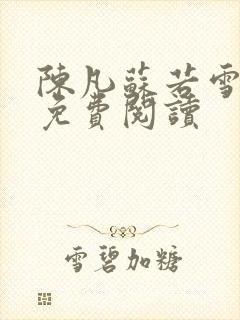 陳凡蘇若雪
免費閱讀
雪碧加糖